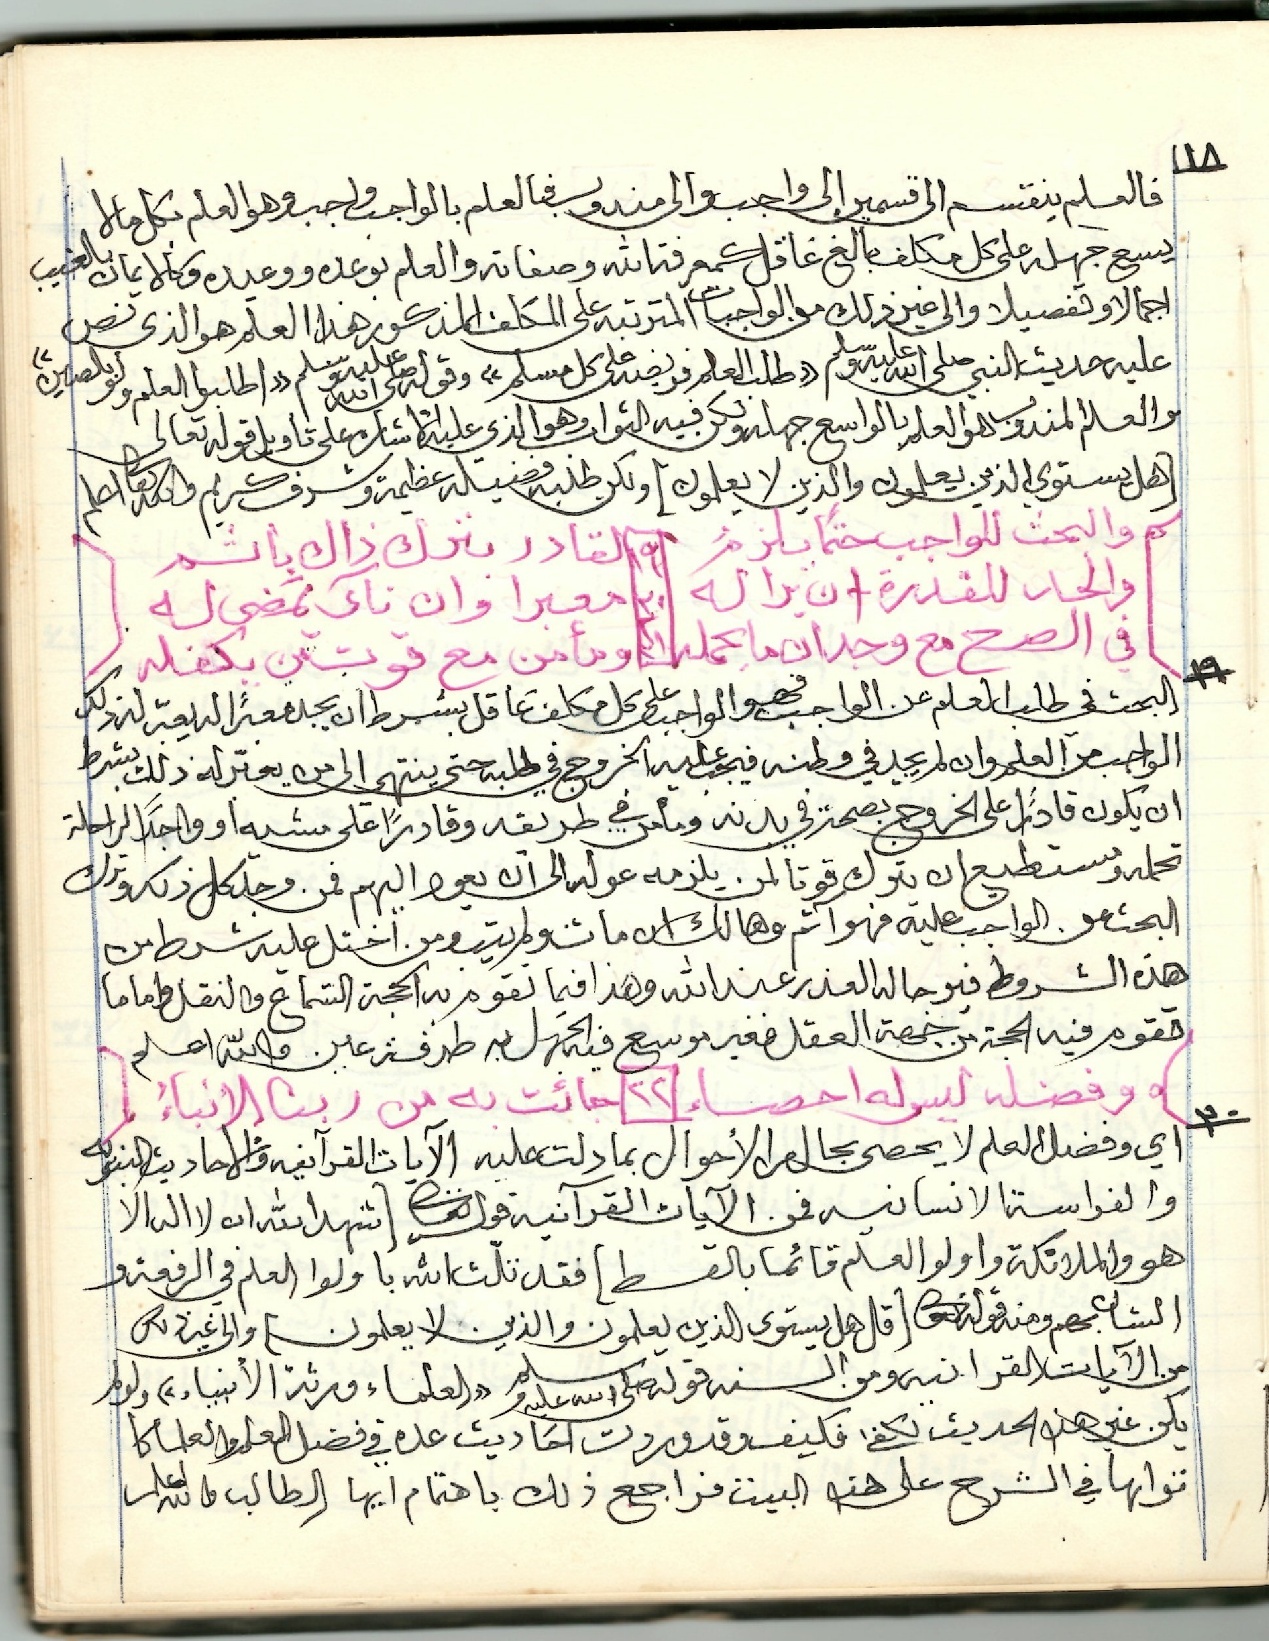 ١٨
فالعلم ينقسم الى قسمين إلى واجب والى مندوب فالعلم بالواجب واجب وهو العلم بكل مالا
يسع جهله على كل مكلف بالغ عاقل كمعرفة الله وصفاته والعلم بوعده ووعيده وكالايمان بالغيب
اجمالا وتفصيلا والى غير ذلك من الواجبات المترتبه على المكلف المذكور هذا العلم هو الذي نص
عليه حديث النبي صلى الله عليه وسلم «طلب العلم فريضة على كل مسلم» وقوله صلى الله عليه وسلم «اطلبوا العلم ولو بالصين»
والعلم المندوب هو العلم بالواسع جهله ولكن فيه الثواب وهو الذي عليه الاشاره على تأويل قوله تعالى
[هل يستوي الذين يعلمون والذين لا يعلمون] ولكن طلبه فضيله عظيمة وشرف كريم والله تعالى اعلم
والبحث للواجب حتمًا يلزمُ [١٩] لقادر بترك ذاك يأثم
والحد للقدرة ان يرا له [٢٠] معبرا وان نأى يمضي له
في الصح مع وجدان ما يحمله [٢١] ومأمن مع قوت من يكفله
١٩
البحث في طلب العلم عن الواجب فهو الواجب على كل مكلف عاقل بشرط ان يجد معبرًا له يعبر له ذلك
الواجب من العلم وان لم يجد في وطنه فيجب عليه الخروج في طلبه حتى ينتهي الى من يعبر له ذلك بشرط
ان يكون قادرًا على الخروج بصحة في بدنه ومأمن في طريقه وقادرًا على مشيه أو واجدًا لراحلة
تحمله ومستطيع ان يترك قوتا لمن يلزمه عوله الى ان يعود اليهم فمن وجد كل ذلك وترك
البحث عن الواجب عليه فهو آثم وهالك ان مات ولم يتب ومن اختل عليه شرط من
هذه الشروط فبر حاله العذر عند الله وهذا فيما تقوم به الحجة السماع والنقل واما ما
تقوم فيه الحجة من جهة العقل فغير موسع فيه الجهل به طرفة عين والله اعلم
وفضله ليس له احصاء [٢٢] جائت به من ربنا الانباءُ
٢٠
اي وفضل العلم لا يحصى بحال من الأحوال بما دلت عليه الآيات القرآنيه والاحاديث النبويه
والفراسة الانسانيه فمن الآيات القرآنية قوله تعالى [شهد الله ان لا اله الا
هو والملائكة واولوا العلم قائما بالقسط] فقد ثلّث الله باولوا العلم في الرفعة و
الشأن بهم ومنه قوله تعالى [قل هل يستوى الذين يعلمون والذين لا يعلمون] والى غير ذلك
من الآيات القرانيه ومن السنه قوله صلى الله عليه وسلم «العلماء ورثة الأنبياء» ولو لم
يكن غير هذا الحديث لكفى فكيف وقد وردت احاديث عده في فضل العلم والعلماء كما
تراها في الشرح على هذه البيت فراجع ذلك باهتمام ايها الطالب والله اعلم